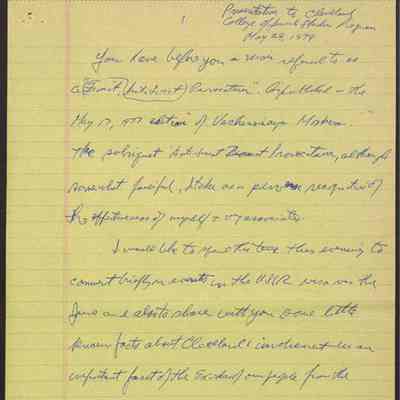 Presentation to Cleveland
College of Jewish Studies Program
May 28, 1978
You have before you a man referred to as
a "Tourist, Provocateur". Published in the
May 17, 1977 edition of Vechernyaya Moskva
The sobriquet Tourist Provocateur, although
somewhat fanciful, I take as a recognition of
the effectiveness of myself + my associates
I would like to the time this evening to
comment briefly on events in the USSR vis a vis the
Jews and also to share with you some little
known facts about Cleveland's involvement in an
important facet of the Exodus of our people from the